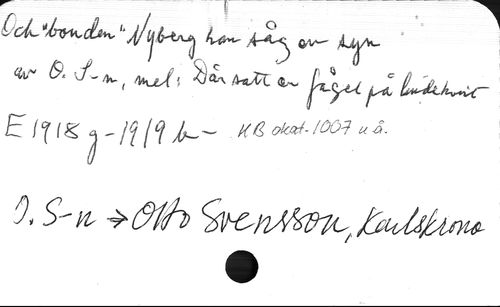 Och "bonden" Nyberg han såg en syn
av O. S-n, mel: Där satt en fågel på lindekvist
E 1918 g - 1919 b - KB okat. 1007 u å.
O. S-n → Otto Svensson, Karlskrona